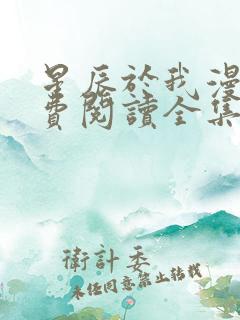 星辰於我漫
費閱讀全集
衛計委
未经同意禁止转载